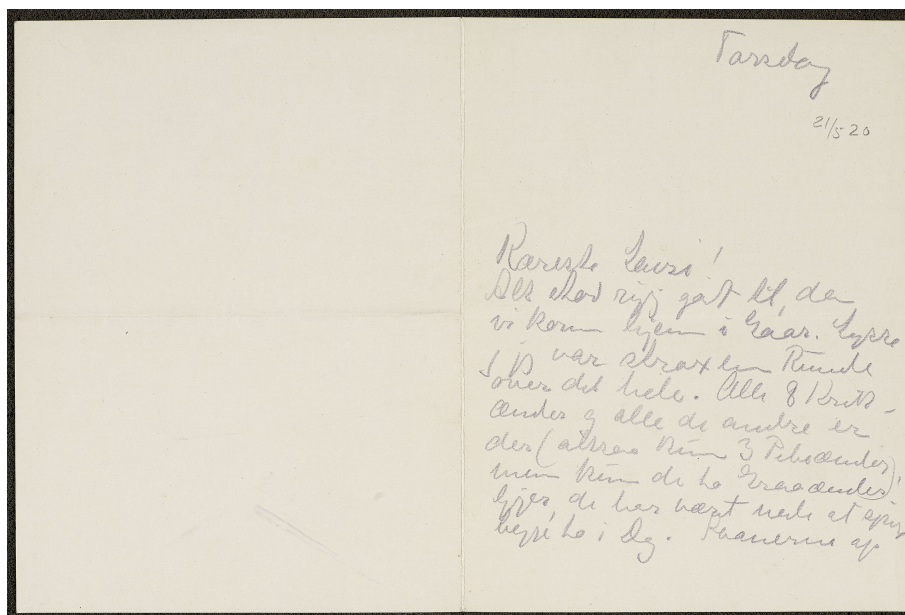 Torsdag
21/5 20
Kæreste Lausi!
Alt stod rigtig godt til, da
vi kom hjem i Gaar. Lysse
& jeg var strax en Runde
over det hele. Alle 8 Krik-
ænder og alle de andre er
der (altsaa kun 3 Pibeænder)
men kun de to Graaænder
de har været nede at spise
begge to i Dag. Svanerne